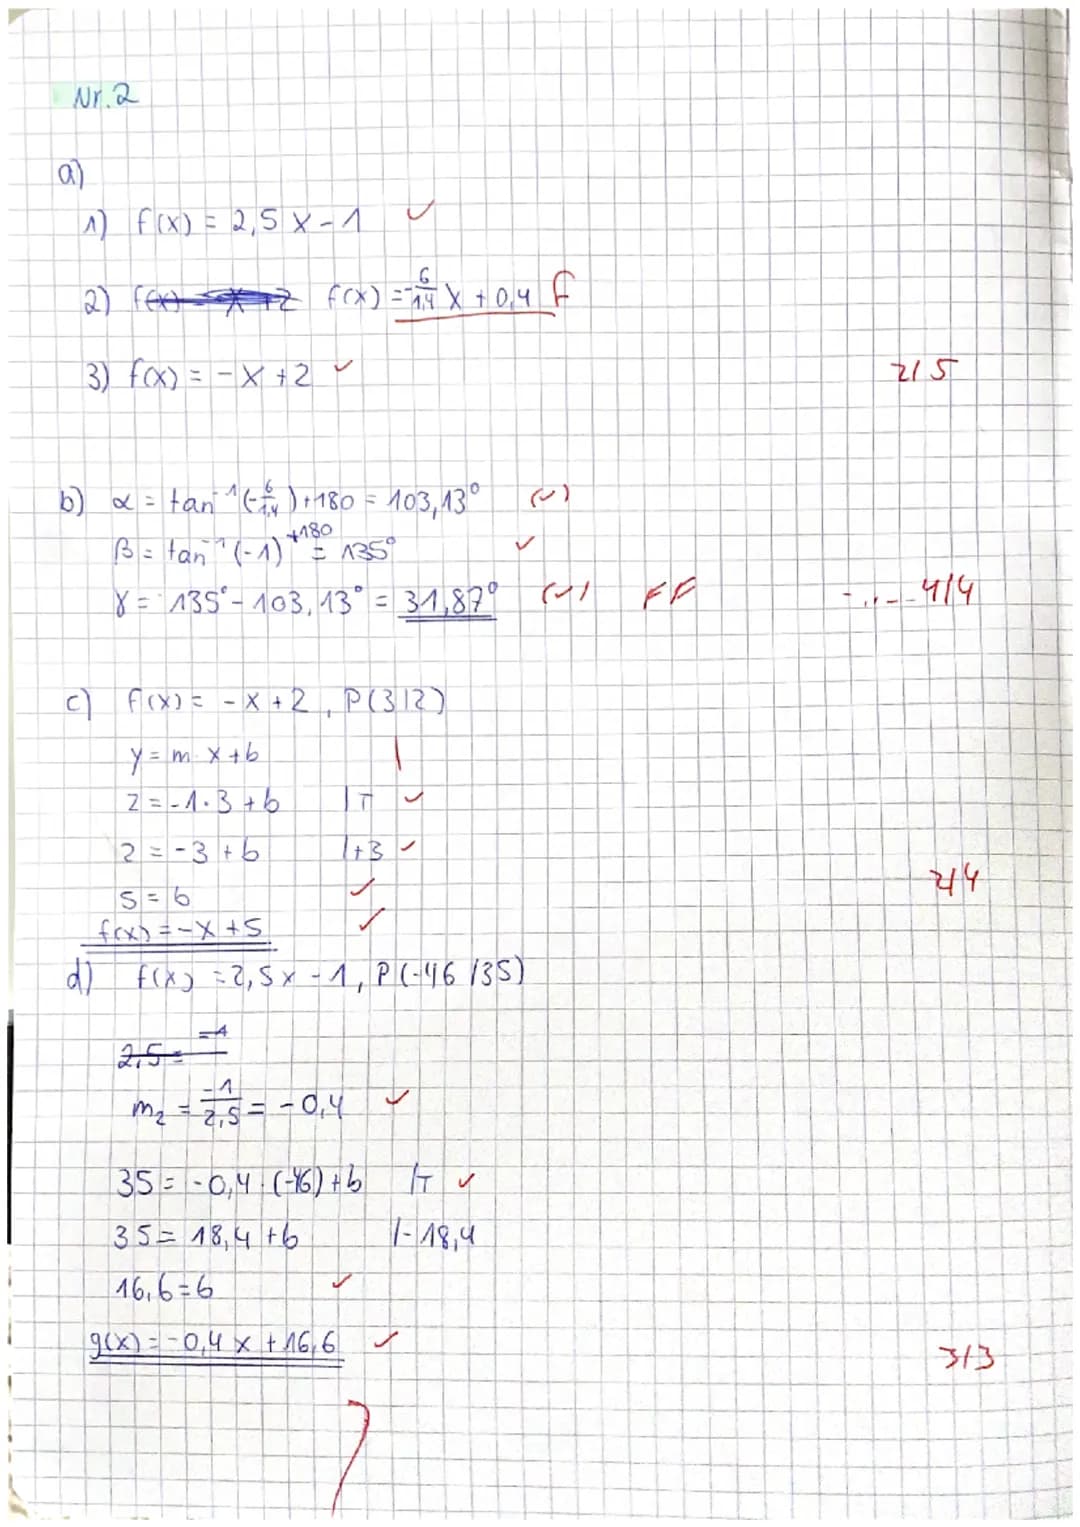 Nr. 2
a)
1) f(x) = 2,5 x - 1 ✓
2) f(x) = -6/1,4 x + 0,4 f
3) f(x) = -x + 2 ✓ 2/5
b) α = tan⁻¹(-6/1,4) + 180 = 103,13° (✓)
β = tan⁻¹(-1) +180 = 135° ✓
γ = 135° - 103,13° = 31,87° (✓) FF 4/4
c) f(x) = -x + 2, P(3|2)
y = m · x + b |
2 = -1 · 3 + b |T ✓
2 = -3 + b |+3 ✓
5 = b ✓
f(x) = -x + 5 ✓
d) f(x) = 2,5x - 1, P(-46/35)
2,5 = -1
m₂ = -1/2,5 = -0,4 ✓
35 = -0,4 · (-46) + b |T ✓
35 = 18,4 + b |- 18,4
16,6 = b ✓
g(x) = -0,4 x + 16,6 ✓ 3/3